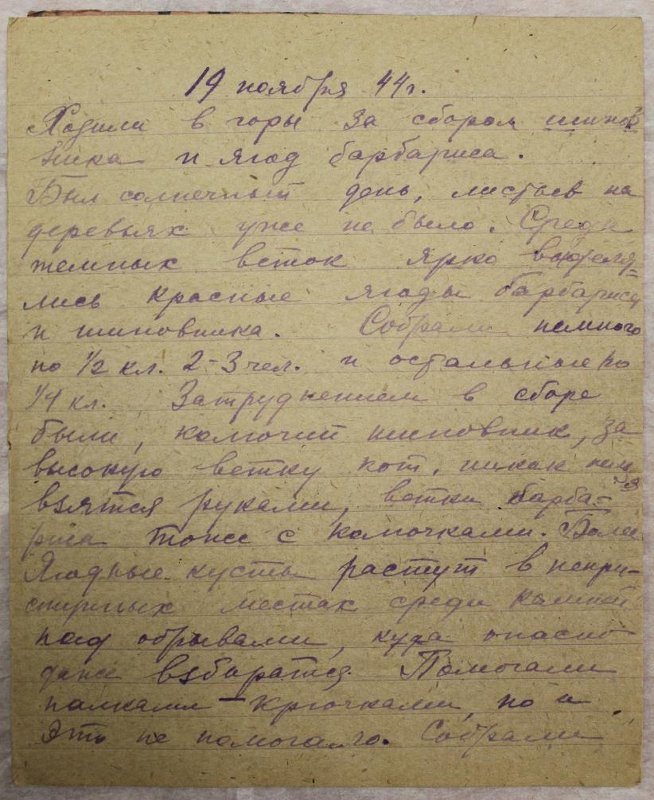 19 ноября 44г.
Ходили в горы за сбором шипов
ника и ягод барбариса.
Был солнечный день, листьев на
деревьях уже не было. Среди
темных веток ярко выделя-
лись красные ягоды барбариса
и шиповника. Собрали немного
по 1/2 кл. 2-3 чел. и остальные по
1/4 кл. Затруднением в сборе
были, колючий шиповник, за
высокую ветку кот. никак нельзя
взятся руками, ветки барба-
риса тоже с колючками. Более
ягодные кусты растут в непри-
ступных местах среди камней
над обрывами, куда опасно
даже взбиратся. Помогали
палками-крючками, но и
это не помогало. Собрали